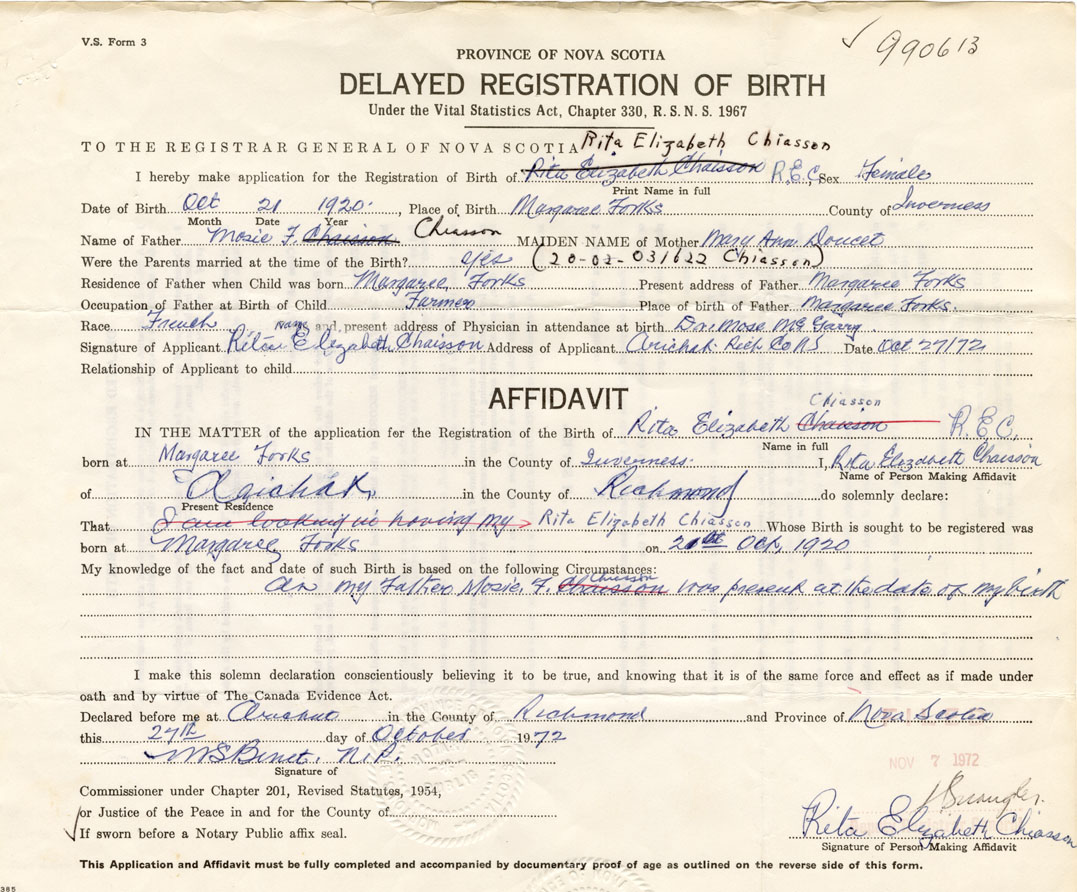 V.S. Form 3
✓ 990613
PROVINCE OF NOVA SCOTIA
DELAYED REGISTRATION OF BIRTH
Under the Vital Statistics Act, Chapter 330, R.S.N.S. 1967
TO THE REGISTRAR GENERAL OF NOVA SCOTIA Rita Elizabeth Chiasson
I hereby make application for the Registration of Birth of Rita Elizabeth Chaisson R.E.C. Sex Female
Print Name in full
Date of Birth Oct 21 1920, Place of Birth Margaree Forks County of Inverness
Month Date Year
Name of Father Mosie F. Chaisson Chiasson MAIDEN NAME of Mother Mary Ann Doucet
Were the Parents married at the time of the Birth? yes (20-02-031622 Chiasson)
Residence of Father when Child was born Margaree Forks Present address of Father Margaree Forks
Occupation of Father at Birth of Child Farmer Place of birth of Father Margaree Forks.
Race French Name and present address of Physician in attendance at birth Dr. Mose Mc Garry
Signature of Applicant Rita Elizabeth Chaisson Address of Applicant Arichat Rich Co NS Date Oct 27/72
Relationship of Applicant to child
AFFIDAVIT
Chiasson
IN THE MATTER of the application for the Registration of the Birth of Rita Elizabeth Chaisson R.E.C.
Name in full
born at Margaree Forks in the County of Inverness. I, Rita Elizabeth Chaisson
Name of Person Making Affidavit
of Arichat, in the County of Richmond do solemnly declare:
Present Residence
That I am looking in having my Rita Elizabeth Chiasson Whose Birth is sought to be registered was
born at Margaree Forks on Oct, 1920
My knowledge of the fact and date of such Birth is based on the following Circumstances:
Chiasson
my Father Mosie F. Chaisson was present at the date of my birth
I make this solemn declaration conscientiously believing it to be true, and knowing that it is of the same force and effect as if made under
oath and by virtue of The Canada Evidence Act.
Declared before me at Arichat in the County of Richmond and Province of Nova Scotia
this 27th day of October 1972
N.P.
Signature of
NOV 7 1972
Commissioner under Chapter 201, Revised Statutes, 1954,
or Justice of the Peace in and for the County of
✓ If sworn before a Notary Public affix seal.
Rita Elizabeth Chiasson
Signature of Person Making Affidavit
This Application and Affidavit must be fully completed and accompanied by documentary proof of age as outlined on the reverse side of this form.
385